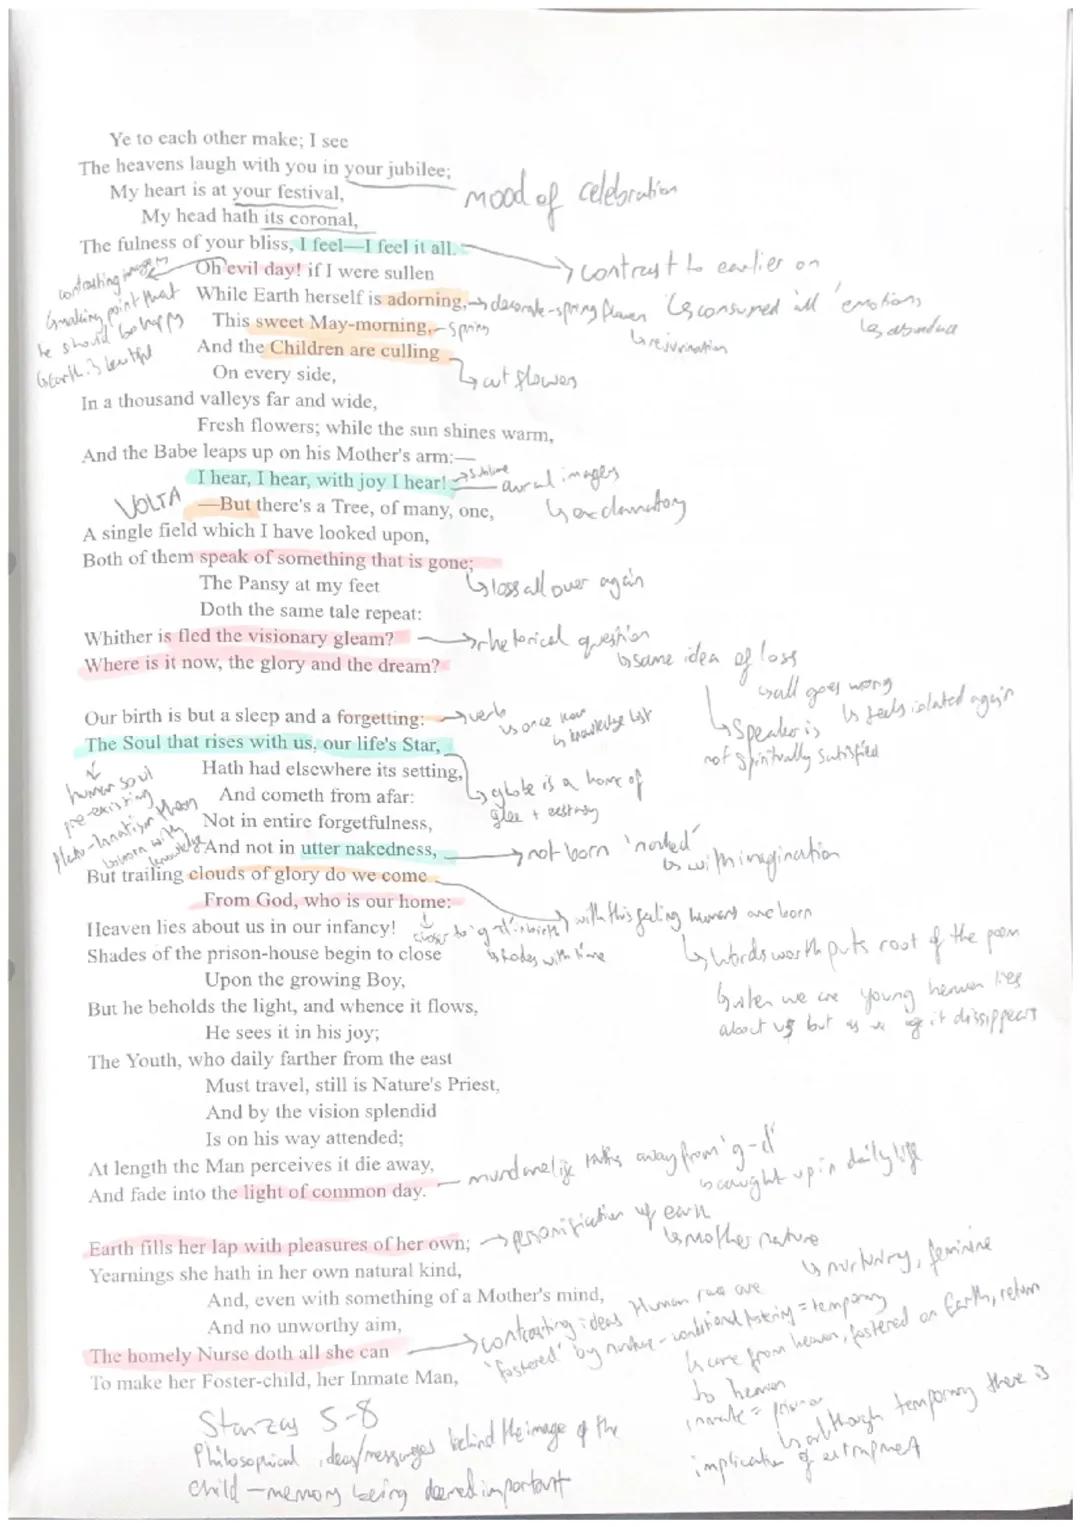 Ye to each other make; I see
The heavens laugh with you in your jubilee;
My heart is at your festival,
mood of celebration
My head hath its coronal,
The fulness of your bliss, I feel—I feel it all.
contrast to earlier on
↳ consumed all 'emotions
contrasting imagery
↳ making point that
he should be happy
↳ Earth is beautiful
Oh evil day! if I were sullen
While Earth herself is adorning, → decorate - spring flower
↳ rejuvination
This sweet May-morning, - spring
And the Children are culling
↳ cut flowers
On every side,
In a thousand valleys far and wide,
Fresh flowers; while the sun shines warm,
And the Babe leaps up on his Mother's arm:—
I hear, I hear, with joy I hear!
→ sublime
aural imagery
↳ exclamatory
VOLTA
—But there's a Tree, of many, one,
A single field which I have looked upon,
Both of them speak of something that is gone;
↳ loss all over again
The Pansy at my feet
Doth the same tale repeat:
Whither is fled the visionary gleam? → rhetorical question
↳ same idea of loss
↳ all goes wrong
↳ feels isolated again
↳ Speaker is
not spiritually satisfied
Where is it now, the glory and the dream?
Our birth is but a sleep and a forgetting: → verb
↳ once now
↳ knowledge lost
The Soul that rises with us, our life's Star,
human soul
pre-existing
↳ globe is a home of
glee + ecstasy
Hath had elsewhere its setting,
And cometh from afar:
Not in entire forgetfulness,
And not in utter nakedness, → not born 'naked'
↳ with imagination
But trailing clouds of glory do we come
with this feeling humans are born
From God, who is our home:
Heaven lies about us in our infancy!
closer to 'g-d' in birth
↳ fades with time
Shades of the prison-house begin to close
↳ Wordsworth puts root of the poem
↳ when we are young heaven lies
about us but as we age it dissippears
Upon the growing Boy,
But he beholds the light, and whence it flows,
He sees it in his joy;
The Youth, who daily farther from the east
Must travel, still is Nature's Priest,
And by the vision splendid
Is on his way attended;
At length the Man perceives it die away,
And fade into the light of common day.
mundane life takes away from 'g-d'
↳ caught up in daily life
Earth fills her lap with pleasures of her own; → personification of earth
↳ mother nature
↳ nurturing, feminine
Yearnings she hath in her own natural kind,
And, even with something of a Mother's mind,
And no unworthy aim,
The homely Nurse doth all she can
→ contrasting ideas Human race are
'fostered' by nurture - conditional fostering = temporary
↳ come from heaven, fostered on Earth, return
to heaven
To make her Foster-child, her Inmate Man,
inmate = prisoner
↳ although temporary there is
implication of entrapment
Stanzas 5-8
Philosophical ideas/messages behind the image of the
child - memory being deemed important